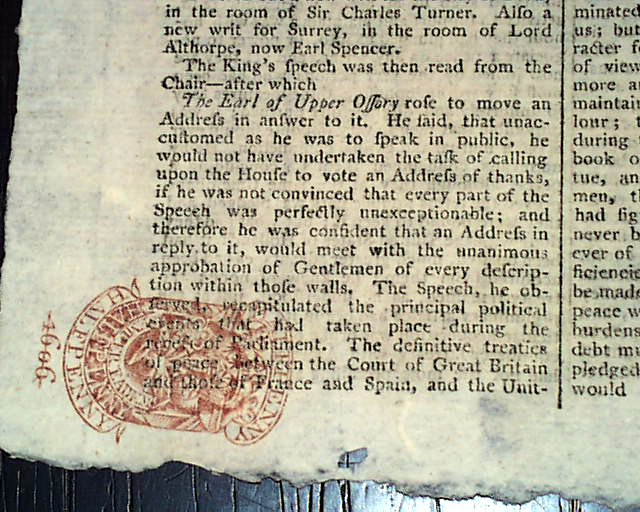 in the room of Sir Charles Turner. Alſo a
new writ for Surrey, in the room of Lord
Althorpe, now Earl Spencer.
The King's ſpeech was then read from the
Chair—after which
The Earl of Upper Oſſory roſe to move an
Addreſs in anſwer to it. He ſaid, that unac-
cuſtomed as he was to ſpeak in public, he
would not have undertaken the taſk of calling
upon the Houſe to vote an Addreſs of thanks,
if he was not convinced that every part of the
Speech was perfectly unexceptionable; and
therefore he was confident that an Addreſs in
reply to it, would meet with the unanimous
approbation of Gentlemen of every deſcrip-
tion within thoſe walls. The Speech, he ob-
ſerved, recapitulated the principal political
events that had taken place during the
receſs of Parliament. The definitive treaties
of peace between the Court of Great Britain
and thoſe of France and Spain, and the Unit-
minated
us; but
racter
of view
more
maintain
lour;
during
book
tue, an
men,
had fig
never b
ever of
ficiencie
be made
peace w
burdens
debt
pledged
would